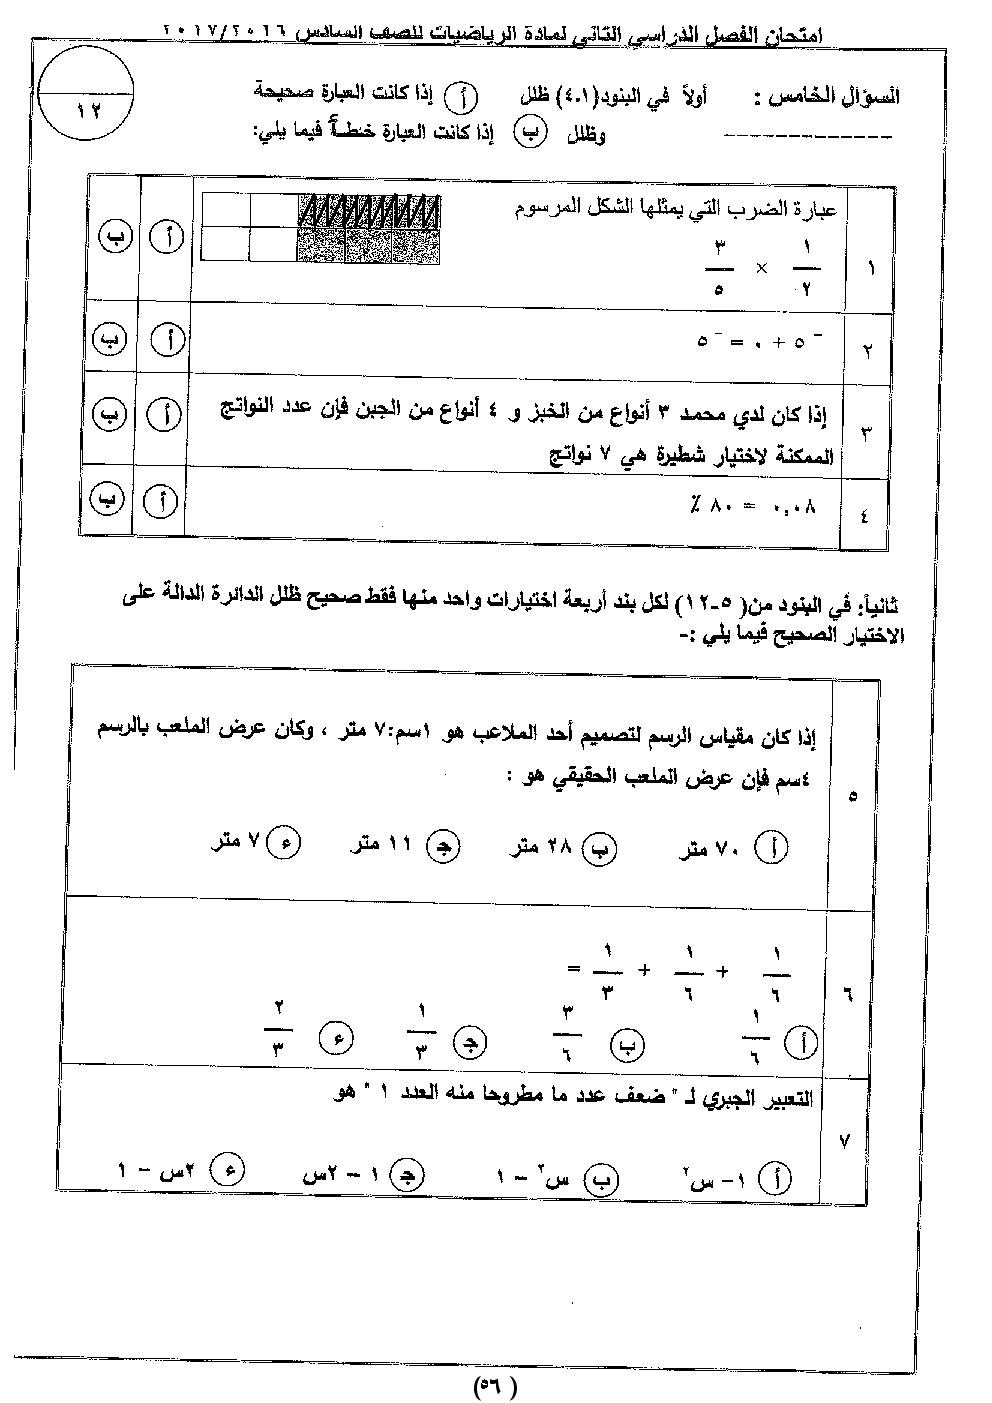 امتحان الفصل الدراسي الثاني لمادة الرياضيات للصف السادس ٢٠١٧/٢٠١٦
١٢
السؤال الخامس : أولاً في البنود(١ـ٤) ظلل أ إذا كانت العبارة صحيحة
وظلل ب إذا كانت العبارة خطأ فيما يلي:
١ عبارة الضرب التي يمثلها الشكل المرسوم أ ب
١/٢ × ٣/٥
٢ ⁻٥ + ٠ = ⁻٥ أ ب
٣ إذا كان لدي محمد ٣ أنواع من الخبز و ٤ أنواع من الجبن فإن عدد النواتج أ ب
الممكنة لاختيار شطيرة هي ٧ نواتج
٤ ٠,٠٨ = ٨٠ ٪ أ ب
ثانياً: في البنود من( ٥ـ١٢) لكل بند أربعة اختيارات واحد منها فقط صحيح ظلل الدائرة الدالة على
الاختيار الصحيح فيما يلي :-
٥ إذا كان مقياس الرسم لتصميم أحد الملاعب هو ١سم:٧ متر ، وكان عرض الملعب بالرسم
٤سم فإن عرض الملعب الحقيقي هو :
أ ٧٠ متر ب ٢٨ متر ج ١١ متر ء ٧ متر
٦ ١/٦ + ١/٦ + ١/٣ =
أ ١/٦ ب ٣/٦ ج ١/٣ ء ٢/٣
٧ التعبير الجبري لـ " ضعف عدد ما مطروحا منه العدد ١ " هو
أ ١- س٢ ب س٢ – ١ ج ١ – ٢س ء ٢س – ١
(٥٦)